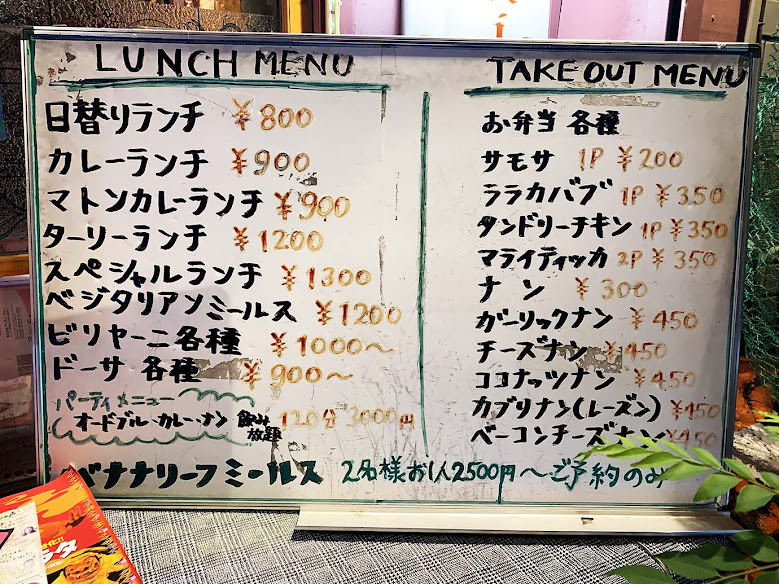 LUNCH MENU
日替りランチ ¥800
カレーランチ ¥900
マトンカレーランチ ¥900
ターリーランチ ¥1200
スペシャルランチ ¥1300
ベジタリアンミールス ¥1200
ビリヤーニ各種 ¥1000〜
ドーサ 各種 ¥900〜
パーティメニュー
(オードブル・カレー・ナン 飲み放題 120分 3000円
バナナリーフミールス 2名様お1人2500円〜ご予約のみ
TAKE OUT MENU
お弁当 各種
サモサ 1P ¥200
ララカバブ 1P ¥350
タンドリーチキン 1P ¥350
マライティッカ 2P ¥350
ナン ¥300
ガーリックナン ¥450
チーズナン ¥450
ココナッツナン ¥450
カブリナン(レーズン) ¥450
ベーコンチーズナン ¥450